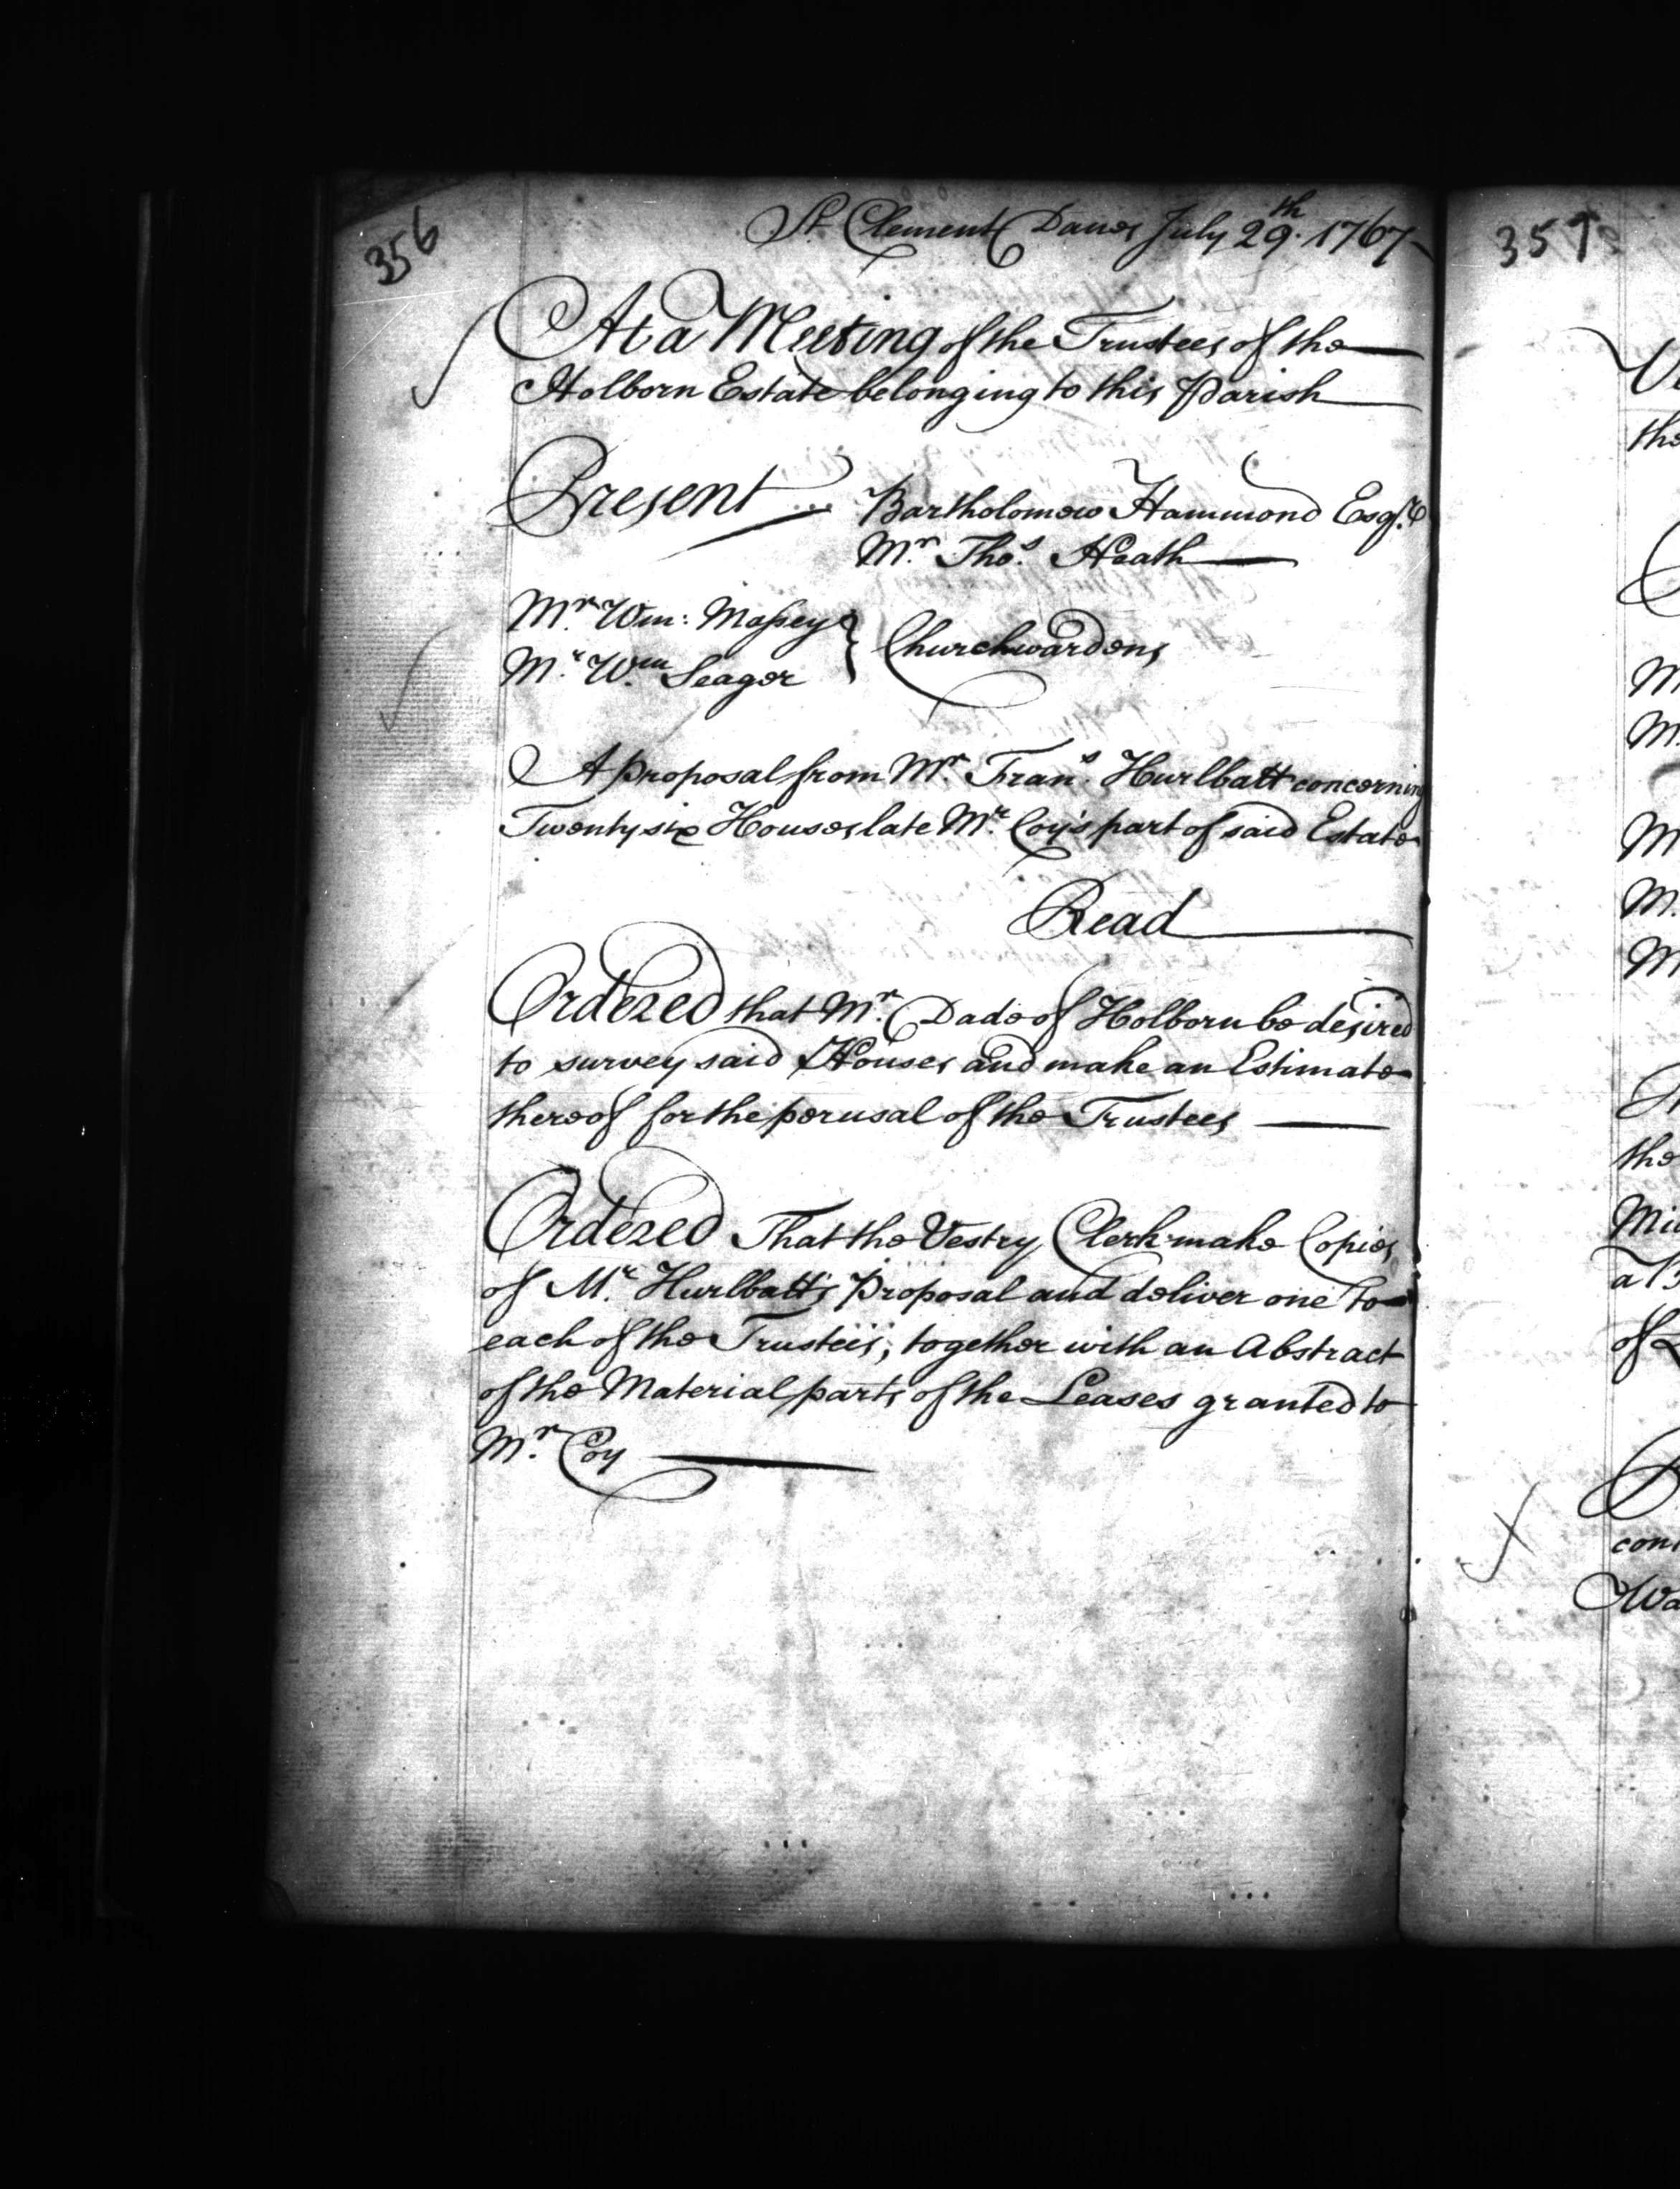 356
St. Clement Danes July 29th. 1767
At a Meeting of the Trustees of the
Holborn Estate belonging to this Parish
Present Bartholomew Hammond Esqr.
Mr. Thos. Heath
Mr. Wm: Massey } Churchwardens
Mr. Wm. Seager
A Proposal from Mr. Frans. Hurlbatt concerning
Twenty six Houses late Mr. Coy's part of said Estate
Read
Ordered that Mr. Dade of Holborn be desired
to survey said Houses and make an Estimate
thereof for the perusal of the Trustees
Ordered That the Vestry Clerk make Copies
of Mr. Hurlbatt's Proposal and deliver one to
each of the Trustees, together with an Abstract
of the Material parts of the Leases granted to
Mr. Coy
357
the
M
M
M
M.
M
the
of